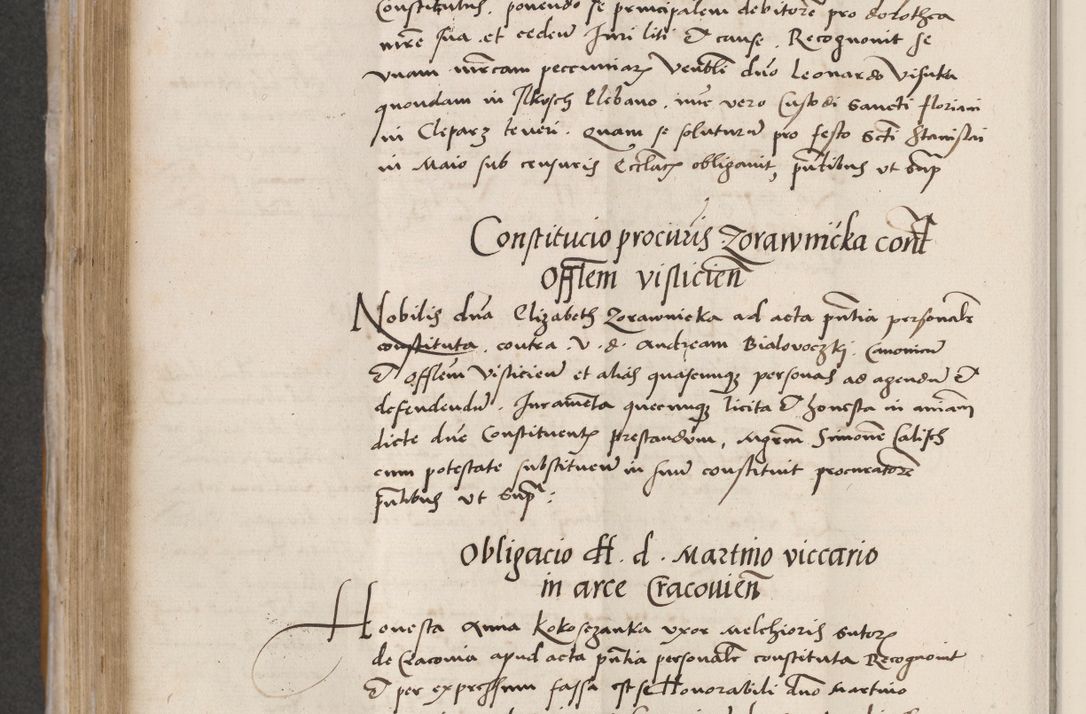 Constitutus, ponendo se principalem debitorē pro dorothea
mrē sua et cedeñ Juri liti & cause, Recognovit se
vnam mrcam pecuniarꝫ Veñbli dño Leonardo Visuta
quondam in Ilkosch plebano, nūc vero Custodi Sancti floriani
in Cleparz teneri. Quam se soluturū pro festo Scti Stanislai
in Maio sub censuris Eccłarꝫ obligauit, pñtibus vt Sup
Constitucio procuris Zorawniczka cont
Offłem visliciēn
Nobilis dña Elizabeth Zorawnicka ad acta pñtia personalr
constituta, contra V. d. Andream Bialovoczkj Canonicū
& Offłem Visliciēn et alias quascunqꝫ personas ad agendū &
defendendū, Juramenta quecunqꝫ licita & honesta in aniam
dicte dñe Constituentꝫ prestandum, Mgrm Simonē Calisch
cum potestate substituendi in suū constituit procuratorē
pñtibus vt Supᵃ:
Obligacio H. d. Martino viccario
in arce Cracouieñ
Honesta Anna Kokoszanka vxor Melchioris Sutorꝫ
de Cracouia apud acta pñtia personalr constituta Recognovit
& per expressum fassa est se Honorabili dño Martino